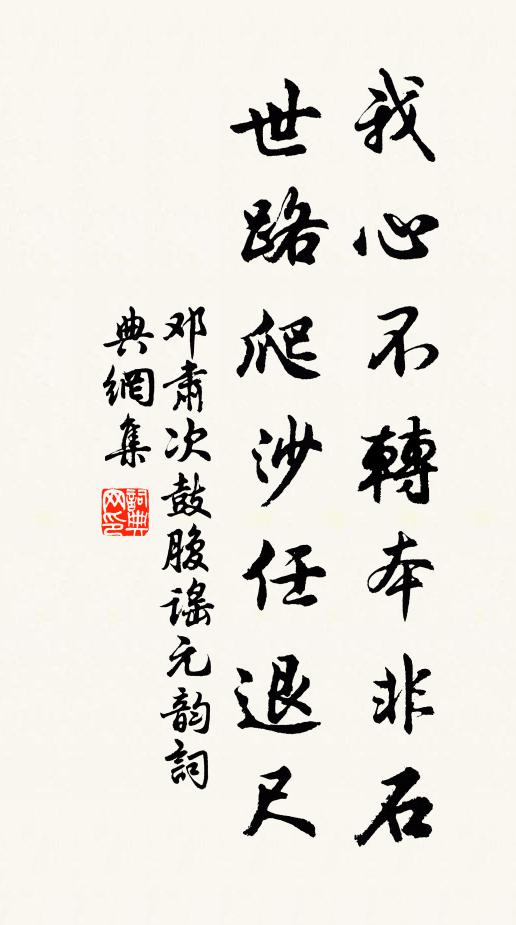 我心不轉本非石
世路爬沙任退尺
邓肅次鼓腹謠元韵詞
典網集
詞典網印